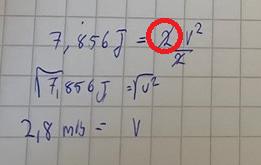 7,856J = 2 v²/2
√7,856J = √v²
2,8 m/s = v